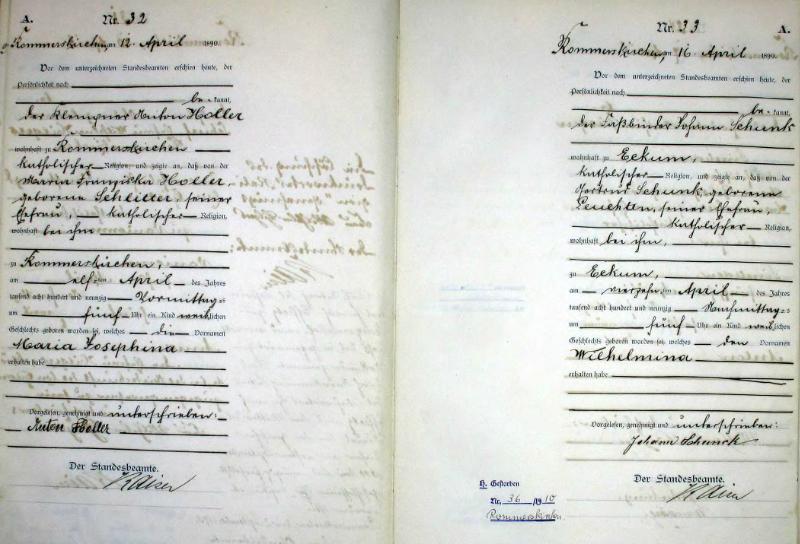 A.
Nr. 32
Rommerskirchen, am 12 April 1890.
Vor dem unterzeichneten Standesbeamten erschien heute, der
Persönlichkeit nach
be kannt,
der Klempner Anton Holler
wohnhaft zu Rommerskirchen
katholischer Religion, und zeigte an, daß von der
Maria Franziska Holler,
geborene Schlitter, seiner
Ehefrau, katholischer Religion,
wohnhaft bei ihm
zu Rommerskirchen,
am elf ten April des Jahres
tausend acht hundert und neunzig Vormittags
um fünf Uhr ein Kind weiblichen
Geschlechts geboren worden sei, welches die Vornamen
Maria Josephina
erhalten habe
Vorgelesen, genehmigt und unterschrieben:
Anton Holler
Der Standesbeamte.
Kaiser
Nr. 33
A.
Rommerskirchen, am 16 April 1890.
Vor dem unterzeichneten Standesbeamten erschien heute, der
Persönlichkeit nach
be kannt,
der Faßbinder Johann Schunk
wohnhaft zu Eckum,
katholischer Religion, und zeigte an, daß von der
Gertrud Schunk, geborene
seiner Ehefrau,
katholischer Religion,
wohnhaft bei ihm,
zu Eckum,
am vierzehn ten April des Jahres
tausend acht hundert und neunzig Nachmittags
um fünf Uhr ein Kind weiblichen
Geschlechts geboren worden sei, welches den Vornamen
Wilhelmina
erhalten habe
Vorgelesen, genehmigt und unterschrieben:
Johann Schunck
Der Standesbeamte.
Kaiser
H. Gestorben
Nr. 36 /1910
Rommerskirchen